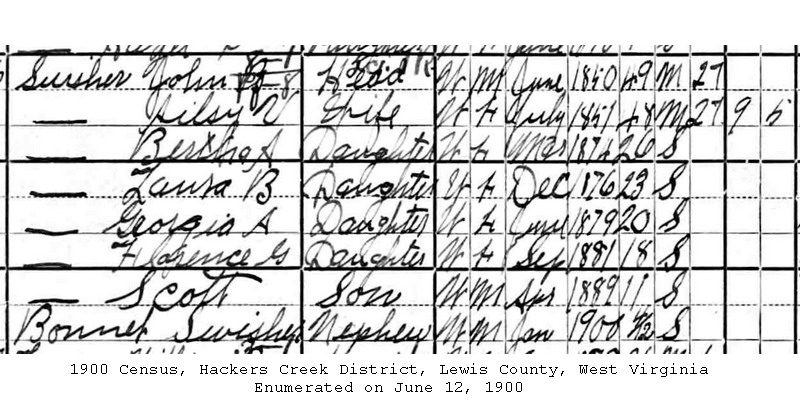 Swisher John Head W M June 1850 49 M 27
— Wife W F July 1851 48 M 27 9 5
— Bertha A Daughter W F Mar 1874 26 S
— Laura B Daughter W F Dec 1876 23 S
— Georgia A Daughter W F June 1879 20 S
— Florence G Daughter W F Sep 1881 18 S
— Scott Son W M Apr 1889 11 S
Bonnet Swisher Nephew W M Jan 1900 4/12 S
1900 Census, Hackers Creek District, Lewis County, West Virginia
Enumerated on June 12, 1900